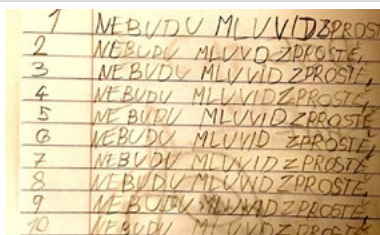 1 NEBUDU MLUVID ZPROST
2 NEBUDU MLUVD ZPROSTĚ,
3 NEBUDU MLUVID ZPROSTĚ,
4 NEBUDU MLUVID ZPROSTĚ,
5 NEBUDU MLUVID ZPROSTĚ,
6 NEBUDU MLUVID ZPROSTĚ,
7 NEBUDU MLUVID ZPROSTĚ,
8 NEBUDU MLUVID ZPROSTĚ,
9 NEBUDU MLUVID ZPROSTĚ,
10 NEBUDU MLUVID ZPROSTĚ